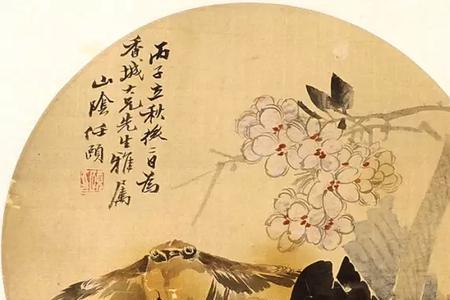 丙子立秋後一日為
香城大兄先生雅属
山陰任頤